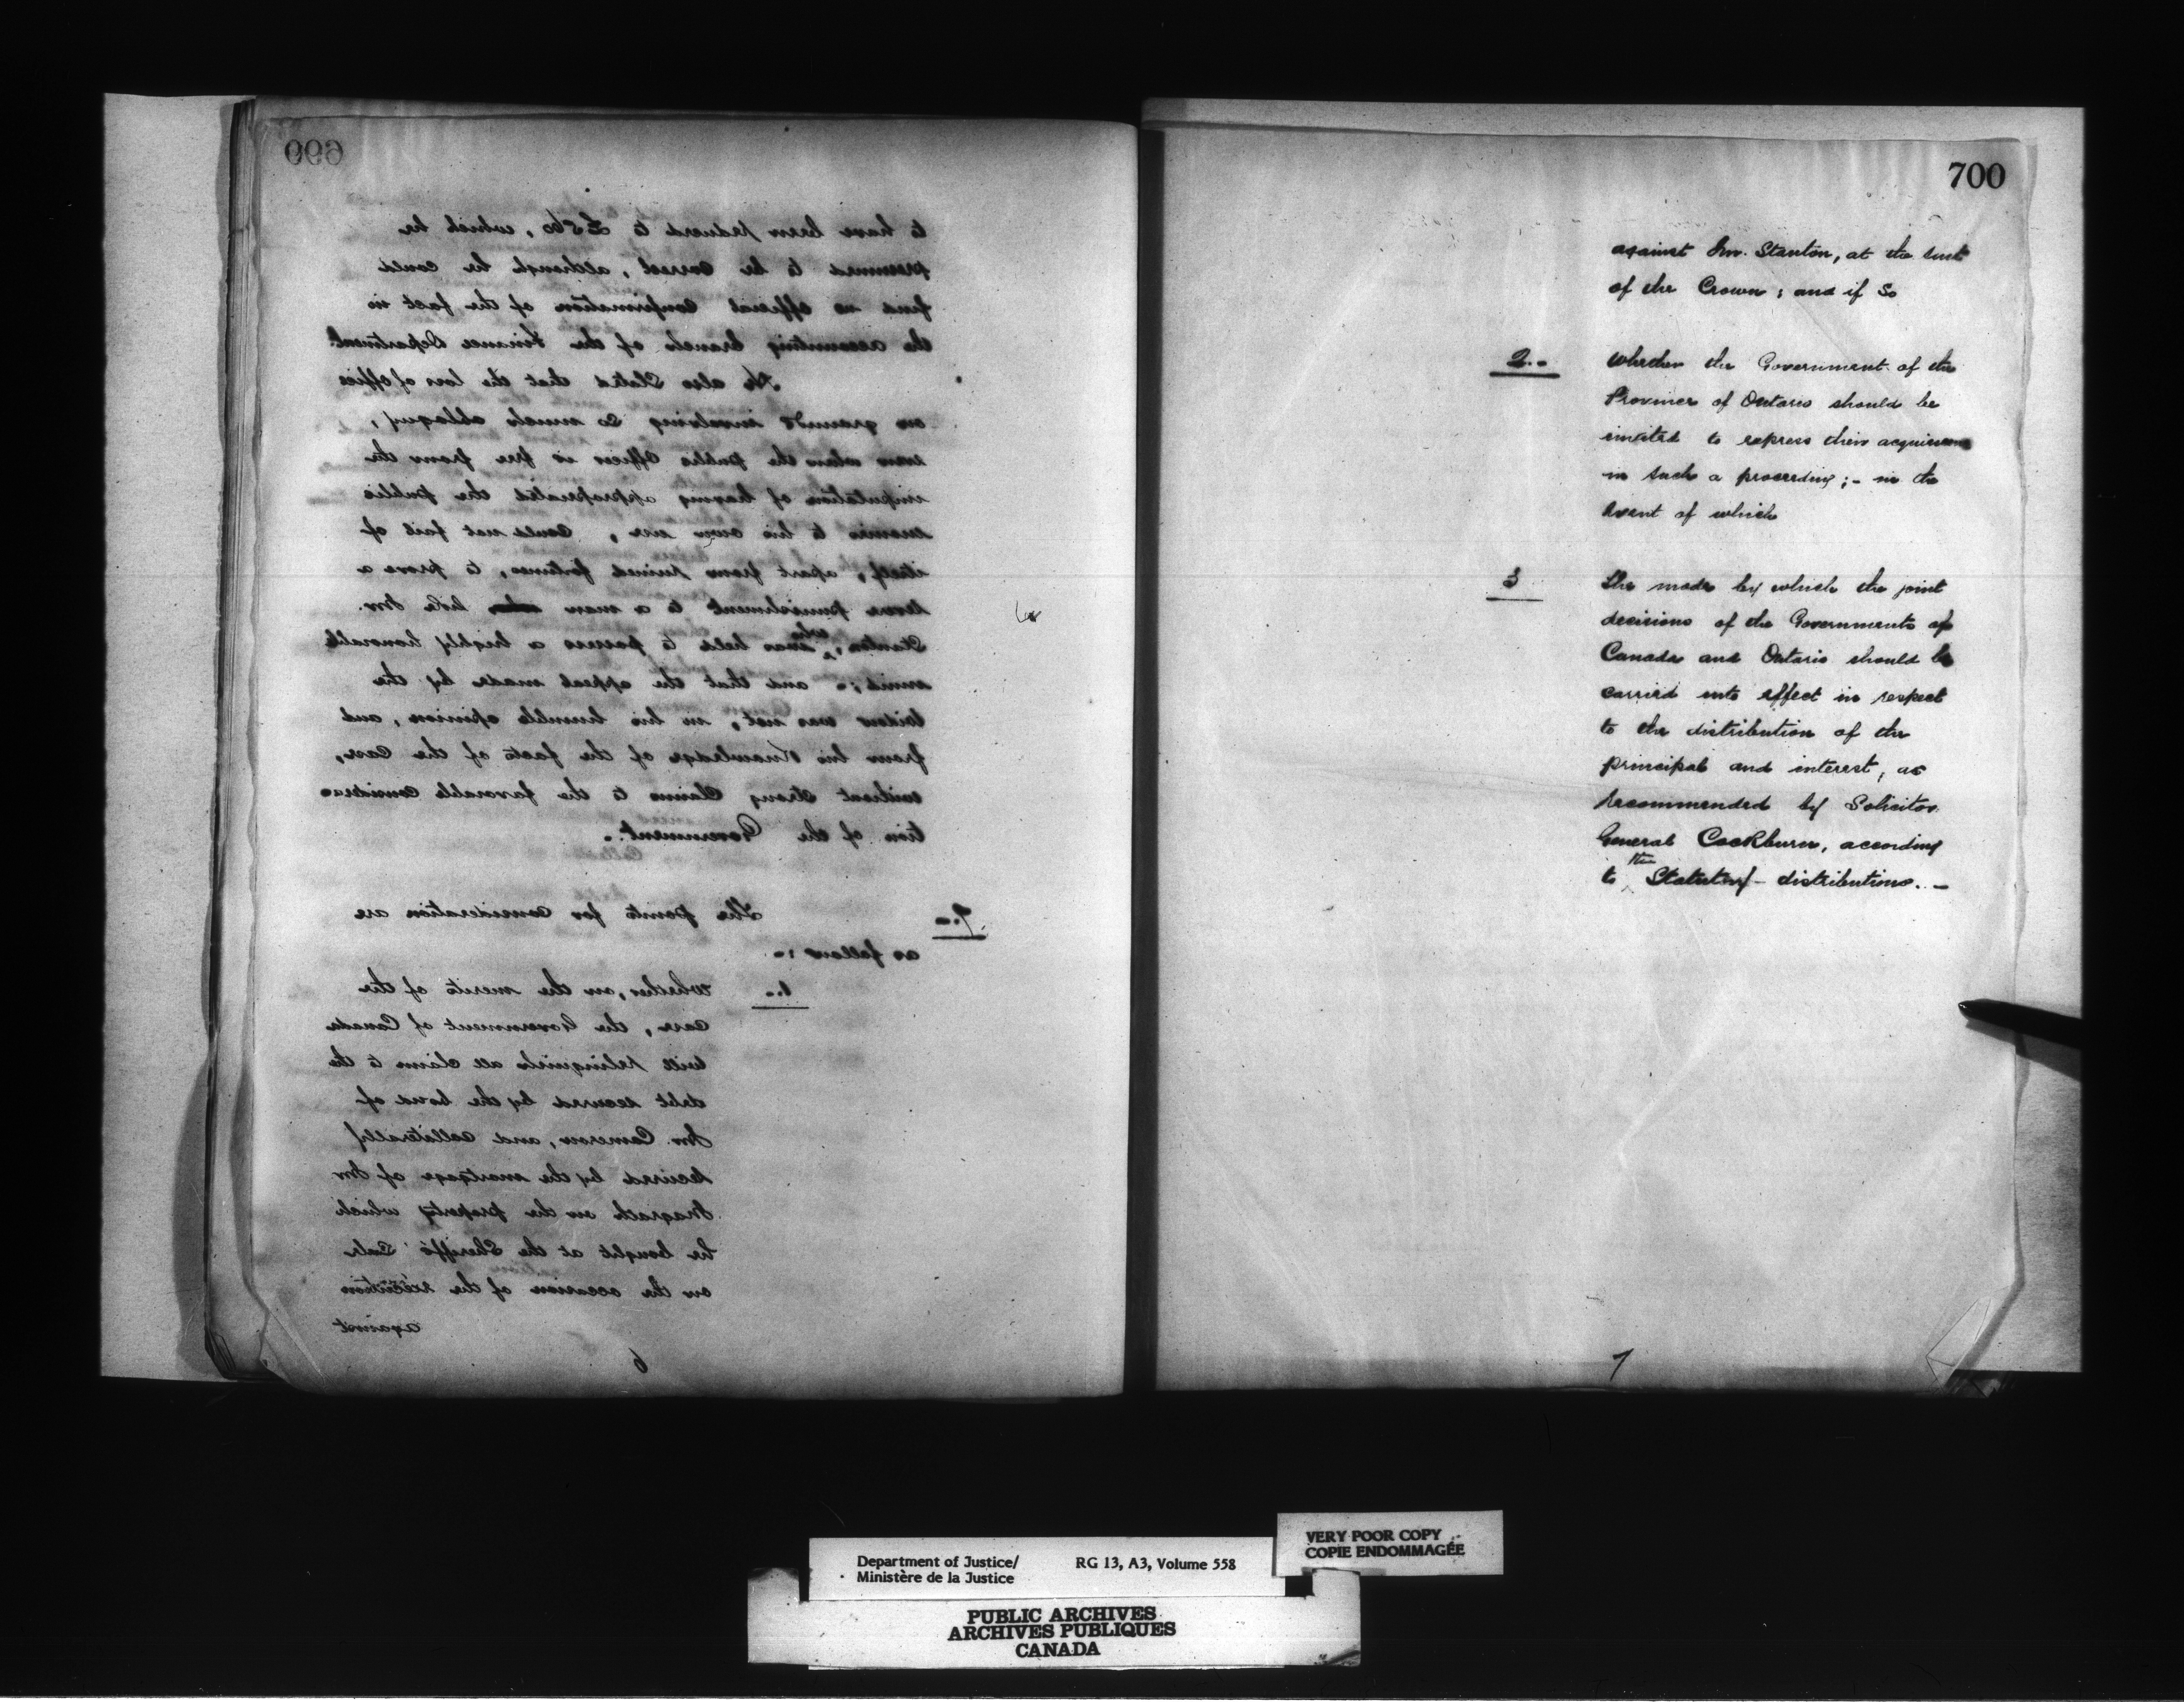 699
to have been reduced to £560, which he
presumed to be correct, although he could
find no official confirmation of the fact in
the accounting branch of the Finance Department.
He also stated that the loss of office
on grounds involving so much obloquy,
even when the public officer is free from the
imputation of having appropriated the public
monies to his own use, could not fail of
itself, apart from ruined fortunes, to prove a
severe punishment to a man like Mr.
Stanton, who was held to possess a highly honorable
mind;- and that the appeal made by the
widow was not, in his humble opinion, and,
from his Knowledge of the facts of the case,
without strong claims to the favorable considera-
tion of the Government.-
7.- The points for consideration are
as follows:-
1.- Whether, on the merits of the
case, the Government of Canada
will relinquish all claim to the
debt secured by the bond of
Mr. Cameron, and collaterally
secured by the mortgage of Mr
Magrath on the property which
he bought at the Sheriff's Sale
on the occasion of the execution
against
6
700
against Mr. Stanton, at the suit
of the Crown; and if so
2.- Whether the Government of the
Province of Ontario should be
invited to express their acquiescence
in such a proceeding;- in the
event of which
3 The mode by which the joint
decisions of the Governments of
Canada and Ontario should be
carried into effect in respect
to the distribution of the
principal and interest, as
recommended by Solicitor
General Cockburn, according
to the Statutory distributions.-
7
Department of Justice/ RG 13, A3, Volume 558
Ministère de la Justice
VERY POOR COPY
COPIE ENDOMMAGÉE
PUBLIC ARCHIVES
ARCHIVES PUBLIQUES
CANADA